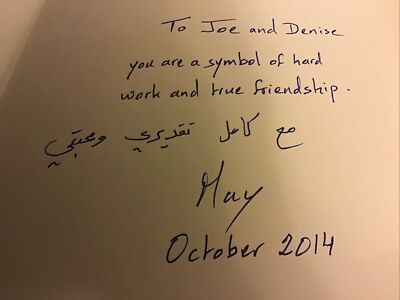 To Joe and Denise
you are a symbol of hard
work and true friendship.
مع كامل تقديري ومحبتي
May
October 2014